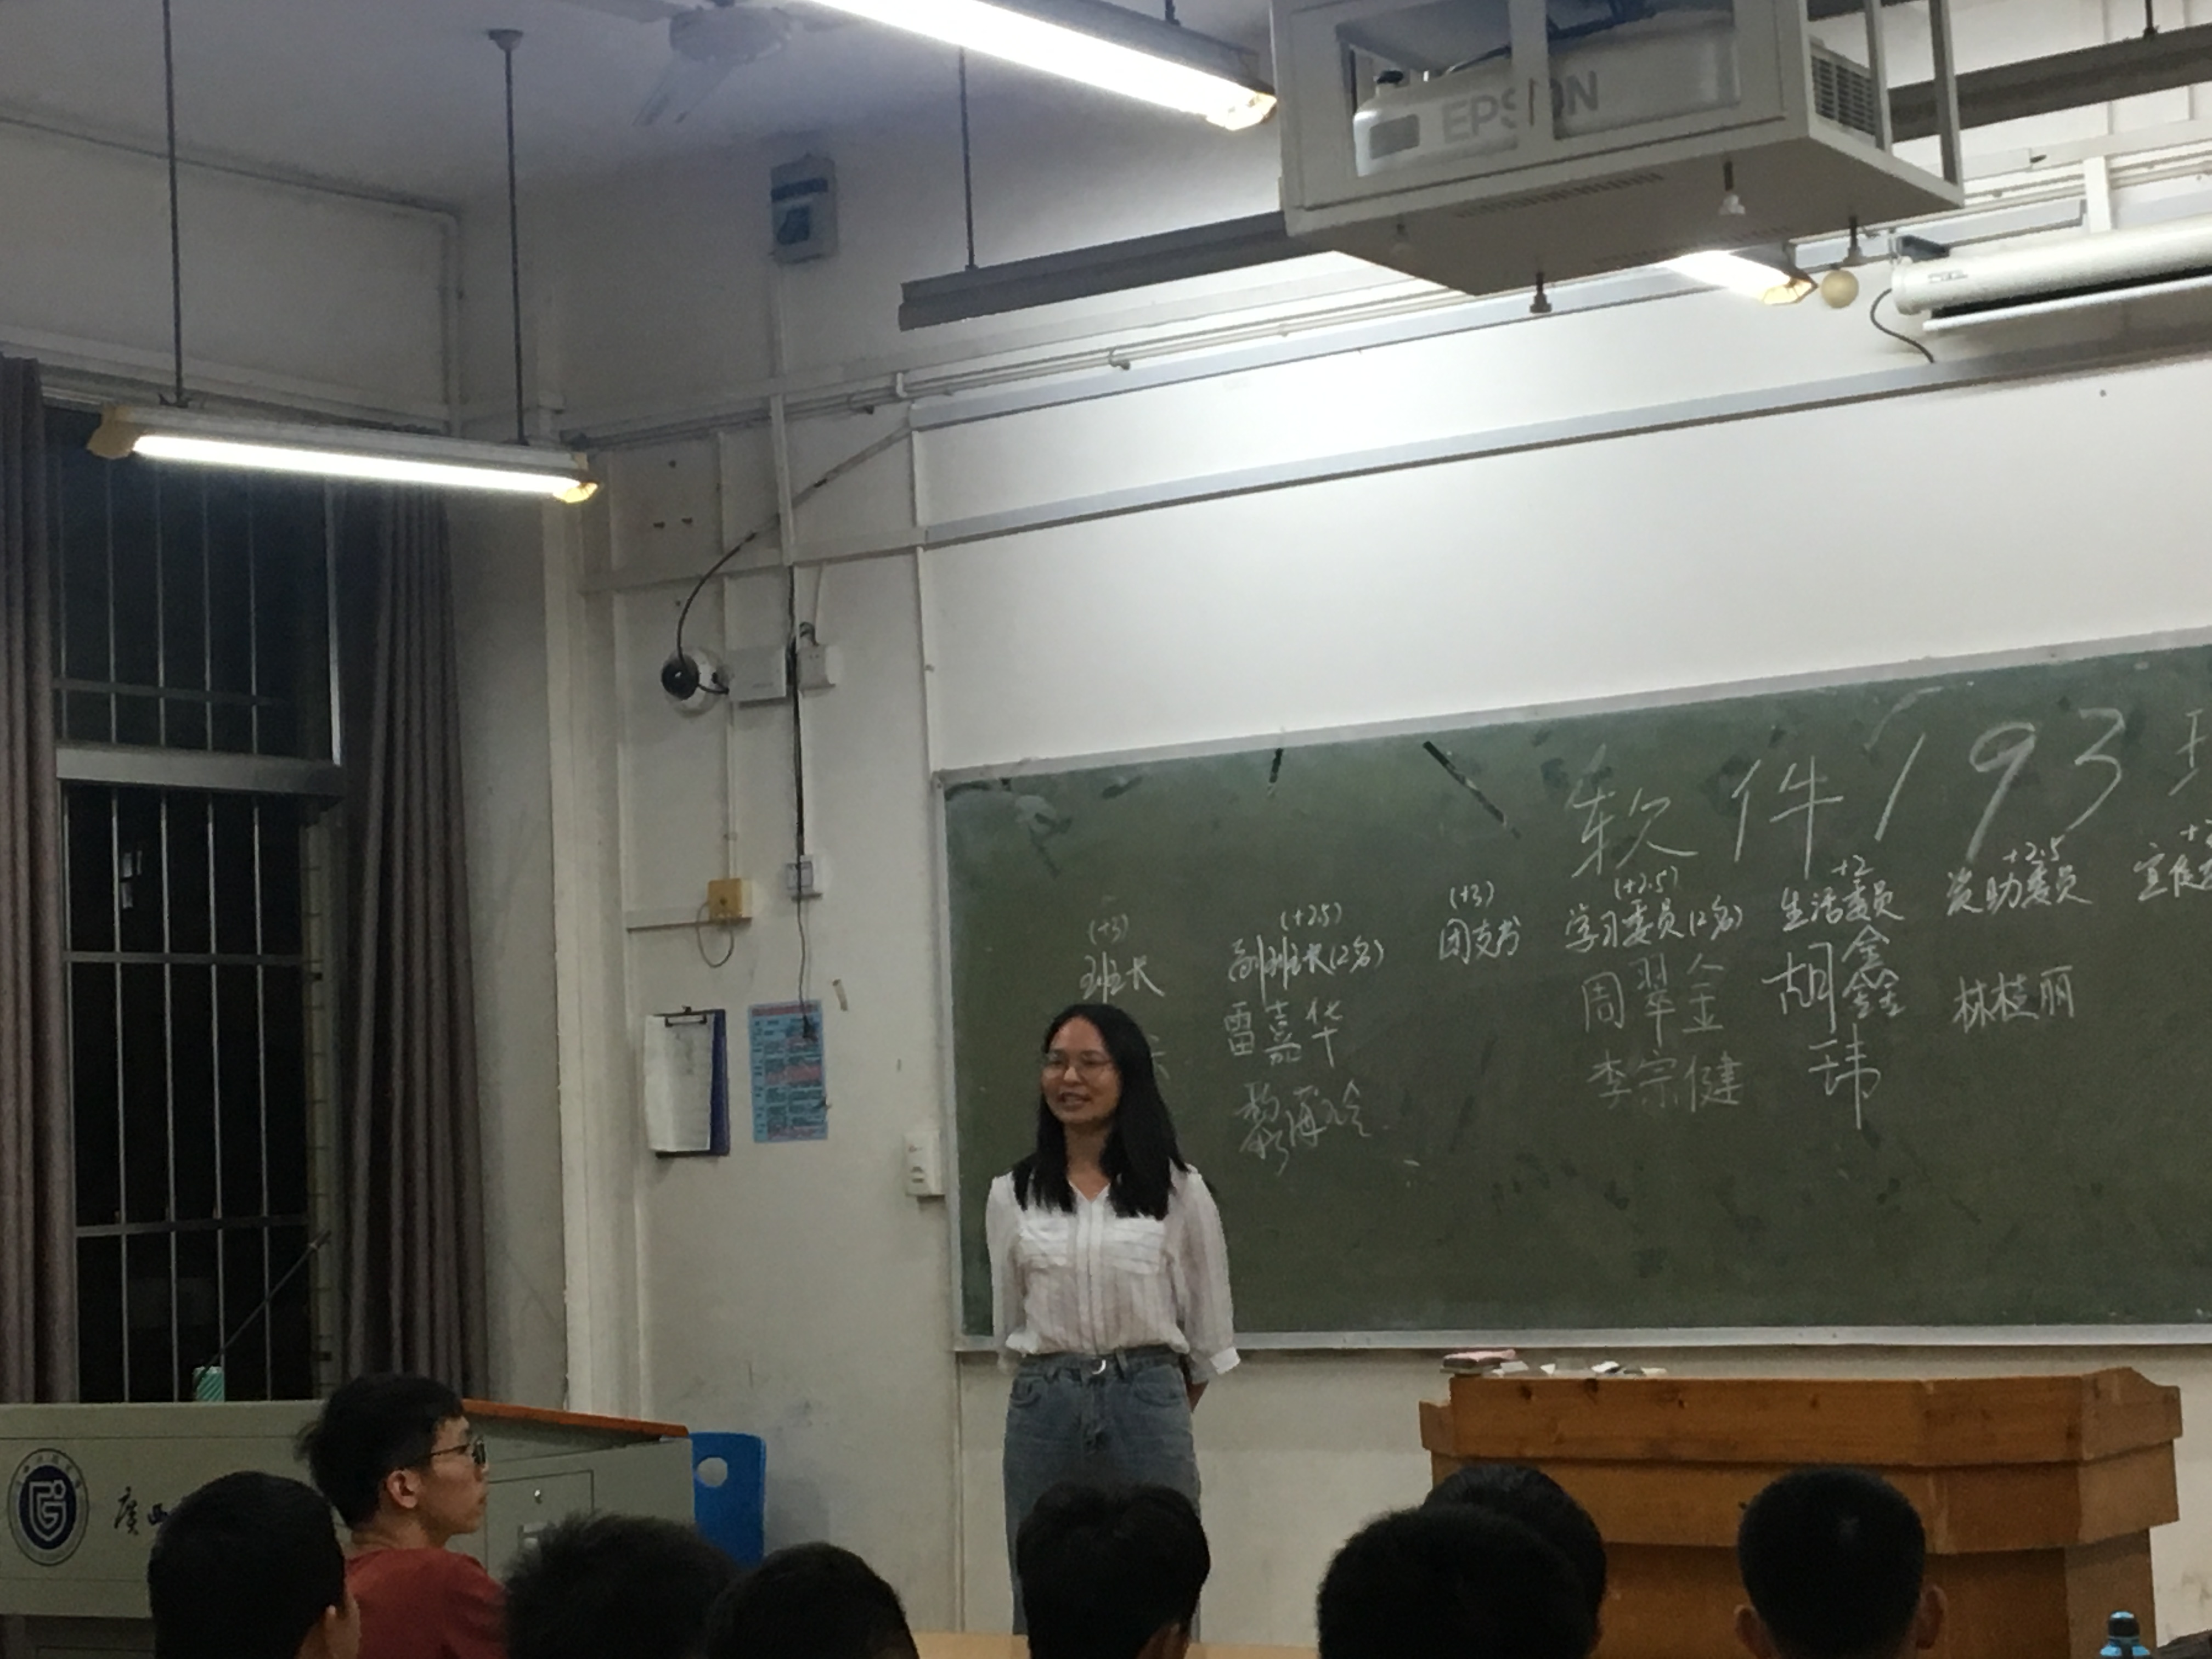 EPSON
软件193
(+3)
班长
(+2.5)
副班长(2名)
雷嘉华
(+3)
团支书
(+2.5)
学习委员(2名)
周翠金
李宗健
+2
生活委员
胡鑫
玮
+2.5
资助委员
林桂丽
广西